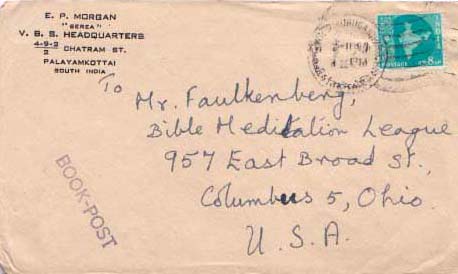 E. P. MORGAN
"BEREA"
V. B. S. HEADQUARTERS
4-9-2
2 CHATRAM ST.
PALAYAMKOTTAI
SOUTH INDIA
To
Mr. Faulkenberg,
Bible Meditation League
957 East Broad St.,
Columbus 5, Ohio.
U. S. A.
BOOK-POST